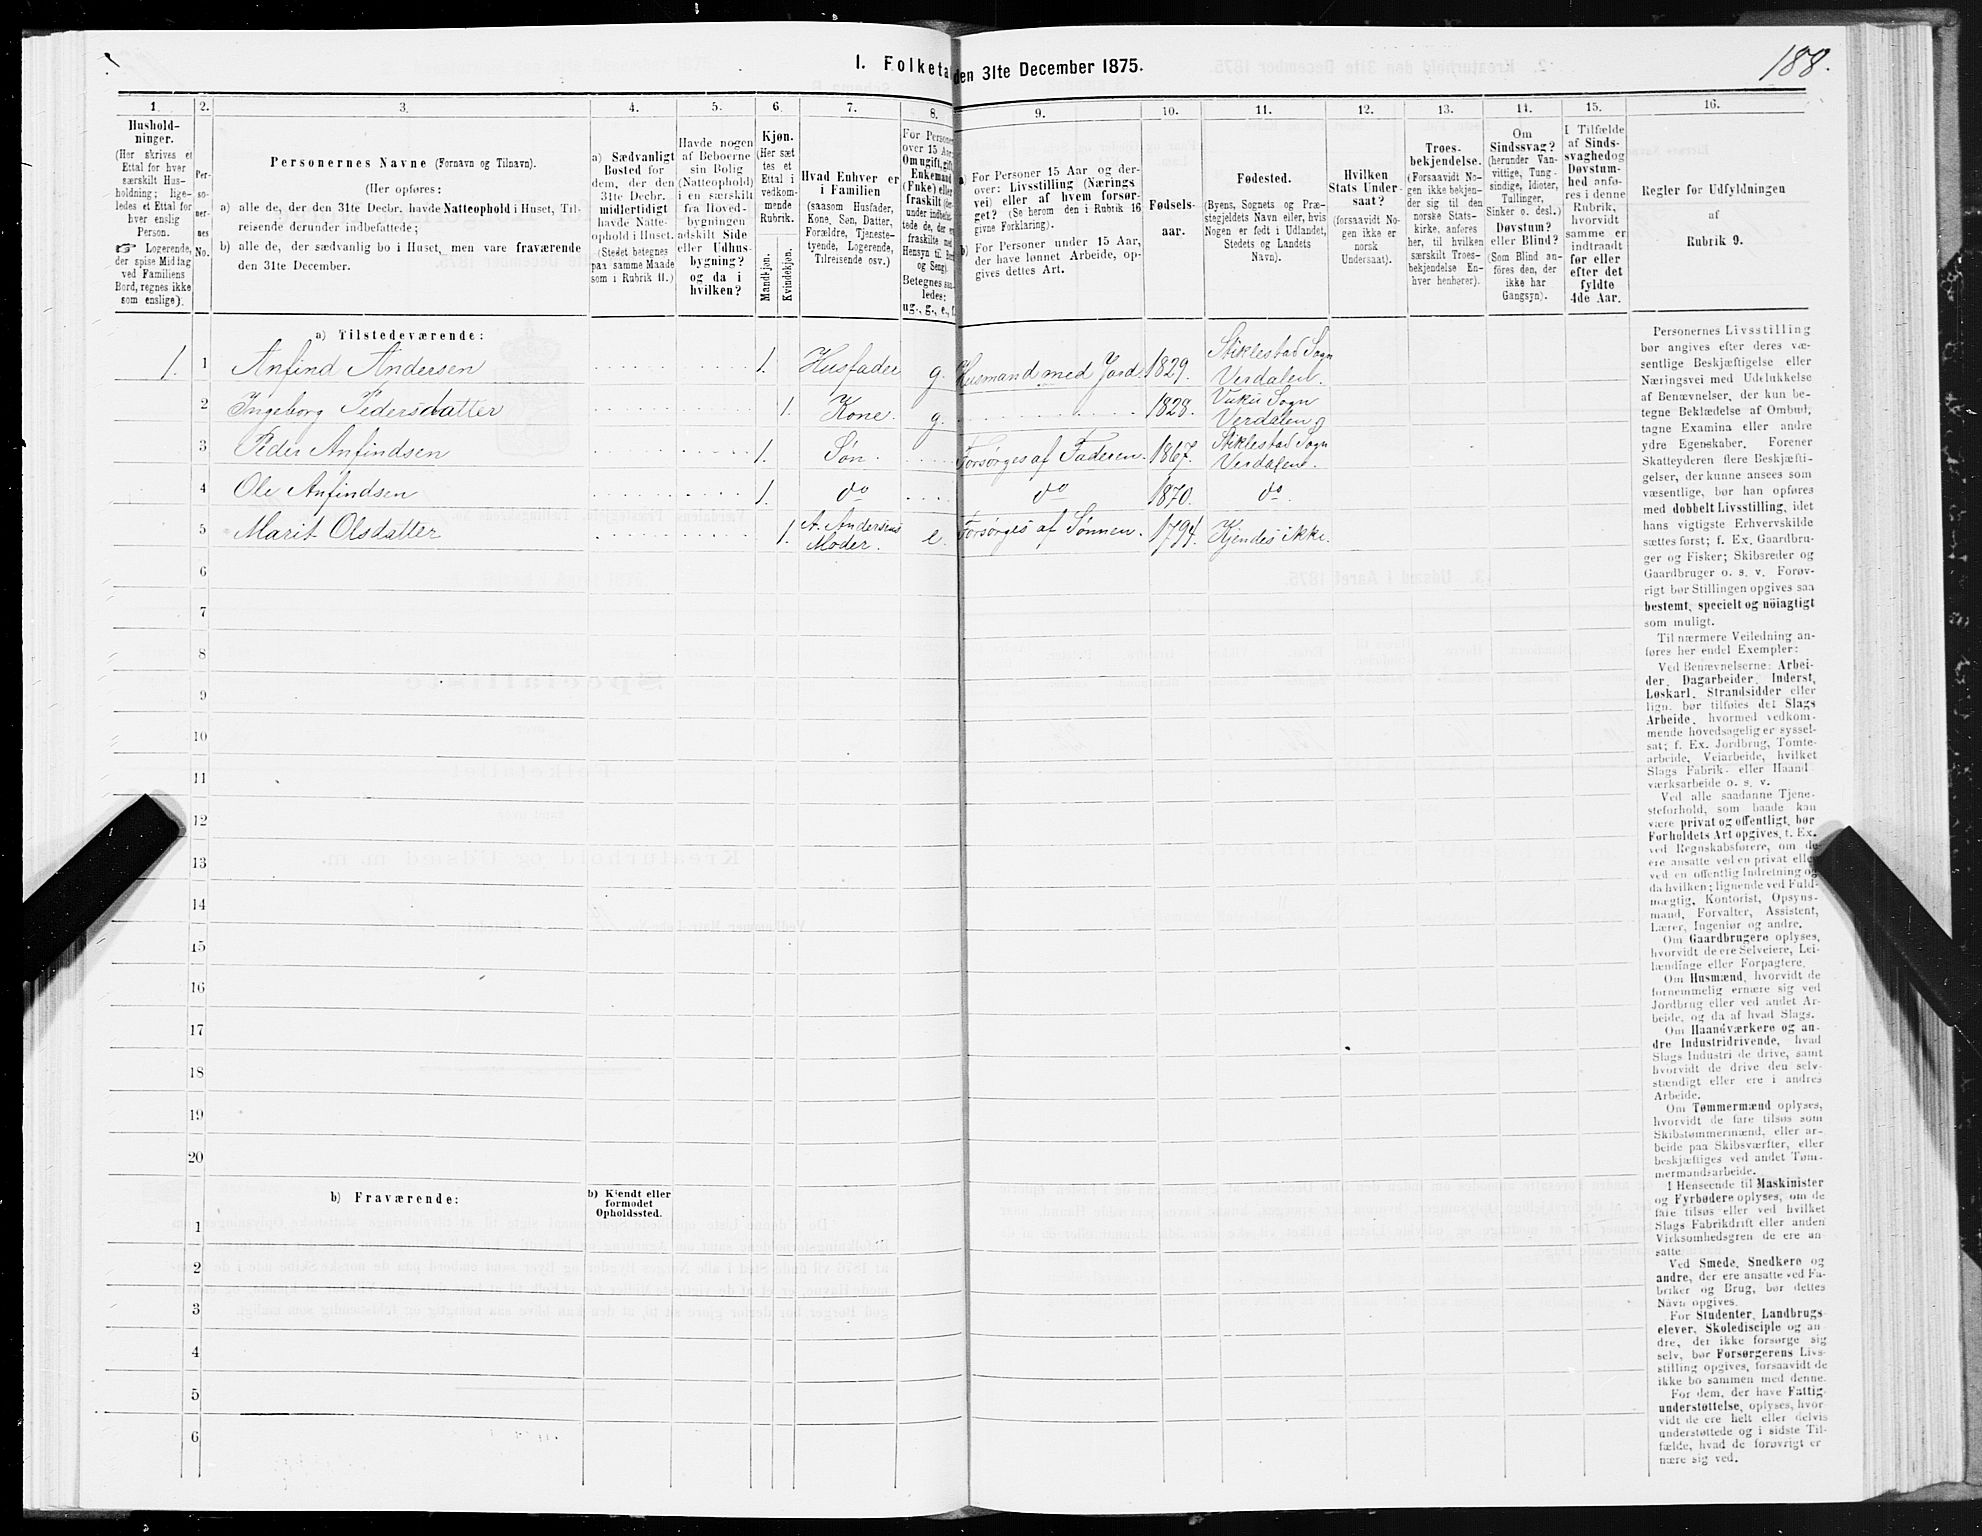 188.
I. Folketal den 31te December 1875.
1. 2. 3. 4. 5. 6. 7. 8. 9. 10. 11. 12. 13. 14. 15. 16.
Hushold-
ninger.
(Her skrives et
Ettal for hver
særskilt Hus-
holdning; lige-
ledes et Ettal for
hver enslig
Person.
☞ Logerende,
der spise Middag
ved Familiens
Bord, regnes ikke
som enslige).
Per-
so-
ner-
nes
No.
Personernes Navne (Fornavn og Tilnavn).
(Her opføres:
a) alle de, der den 31te Decbr. havde Natteophold i Huset, Til-
reisende derunder indbefattede;
b) alle de, der sædvanlig bo i Huset, men vare fraværende
den 31te December.
a) Sædvanligt
Bosted for
dem, der den
31te Decbr.
midlertidigt
havde Natte-
ophold i Huset.
(Stedet betegnes
paa samme Maade
som i Rubrik 11.)
Havde nogen
af Beboerne
sin Bolig
(Natteophold)
i en særskilt
fra Hoved-
bygningen
adskilt Side
eller Udhus-
bygning?
og da i
hvilken?
Kjøn.
(Her sæt
tes et
Ettal i
vedkom-
mende
Rubrik.
Mandkjøn.
Kvindekjøn.
Hvad Enhver er
i Familien
(saasom Husfader,
Kone, Søn, Datter,
Forældre, Tjeneste-
tyende, Logerende,
Tilreisende osv.)
For Personer
over 15 Aar:
Om ugift, gift,
Enkemand
(Enke) eller
fraskilt (der-
under indbefat-
tede de, der ere
fraskilte med
Hensyn til Bord
og Seng).
Betegnes saa-
ledes:
ug., g., e., f.
a) For Personer 15 Aar og der-
over: Livsstilling (Nærings
vei) eller af hvem forsør-
get? (Se herom den i Rubrik 16
givne Forklaring).
b) For Personer under 15 Aar,
der have lønnet Arbeide, op-
gives dettes Art.
Fødsels-
aar.
Fødested.
(Byens, Sognets og Præ-
stegjeldets Navn eller, hvis
Nogen er født i Udlandet,
Stedets og Landets
Navn).
Hvilken
Stats Under-
saat?
(forsaavidt No-
gen ikke er
norsk
Undersaat).
Troes-
bekjendelse.
(Forsaavidt No-
gen ikke bekjen-
der sig til den
norske Stats-
kirke, anføres
her, til hvilken
særskilt Troes-
bekjendelse En-
hver henhører).
Om
Sindssvag?
(herunder Van-
vittige, Tung-
sindige, Idioter,
Tullinger,
Sinker o. desl.)
Døvstum?
eller Blind?
(Som Blind an-
føres den, der
ikke har
Gangsyn).
I Tilfælde
af Sinds-
svaghed og
Døvstum-
hed anfø-
res i denne
Rubrik,
hvorvidt
samme er
indtraadt
før eller
efter det
fyldte
4de Aar.
Regler for Udfyldningen
af
Rubrik 9.
a) Tilstedeværende:
1. 1 Anfind Andersen 1. Husfader g. Husmand med Jord. 1829. Stiklestad Sogn Verdalen.
2 Ingeborg Pedersdatter 1. Kone. g. 1828. Vuku Sogn Verdalen
3 Peder Anfindsen 1. Søn. Forsørges af Faderen. 1867. Stiklestad Sogn Verdalen.
4 Ole Anfindsen 1. do do 1870. do.
5 Marit Olsdatter 1. A. Andersens Moder. e. Forsørges af Sønnen. 1794. Kjendes ikke.
6
7
8
9
10
11
12
13
14
15
16
17
18
19
20
b) Fraværende:
b) Kjendt eller
formodet
Opholdssted.
1
2
3
4
5
6
Personernes Livsstilling
bør angives efter deres væ-
sentlige Beskjæftigelse eller
Næringsvei med Udelukkelse
af Benævnelser, der kun be-
tegne Beklædelse af Ombud,
tagne Examina eller andre
ydre Egenskaber. Forener
Skatteyderen flere Beskjæfti-
gelser, der kunne ansees som
væsentlige, bør han opføres
med dobbelt Livsstilling, idet
hans vigtigste Erhvervskilde
sættes først; f. Ex. Gaardbru-
ger og Fisker; Skibsreder og
Gaardbruger o. s. v. Forøv-
rigt bør Stillingen opgives saa
bestemt, specielt og nöiagtigt
som muligt.
Til nærmere Veiledning an-
føres her endel Exempler:
Ved Benævnelserne: Arbei-
der, Dagarbeider, Inderst,
Løskarl, Strandsidder eller
lign. bør tilføies det Slags
Arbeide, hvormed vedkom-
mende hovedsagelig er syssel-
sat; f. Ex. Jordbrug, Tomte-
arbeide, Veiarbeide, hvilket
Slags Fabrik- eller Haand
værksarbeide o. s. v.
Ved alle saadanne Tjene-
steforhold, som baade kan
være privat og offentligt, bør
Forholdets Art opgives, t. Ex.
ved Regnskabsførere, om de
ere ansatte ved en privat eller
ved en offentlig Indretning og
da hvilken; lignende ved Fuld-
mægtig, Kontorist, Opsyns-
mand, Forvalter, Assistent,
Lærer, Ingeniør og andre.
Om Gaardbrugere oplyses,
hvorvidt de ere Selveiere, Lei-
lændinge eller Forpagtere.
Om Husmænd, hvorvidt de
fornemmelig ernære sig ved
Jordbrug eller ved andet Ar-
beide, og da af hvad Slags.
Om Haandværkere og an-
dre Industridrivende, hvad
Slags Industri de drive, samt
hvorvidt de drive den selv-
stændigt eller ere i andres
Arbeide.
Om Tømmermænd oplyses,
hvorvidt de fare tilsøs som
Skibstømmermænd, eller ar-
beide paa Skibsværfter, eller
beskjæftiges ved andet Tøm-
mermandsarbeide.
I Henseende til Maskinister
og Fyrbødere oplyses, om de
fare tilsøs eller ved hvilket
Slags Fabrikdrift eller anden
Virksomhedsgren de ere an-
satte.
Ved Smede, Snedkere og
andre, der ere ansatte ved Fa-
briker og Brug, bør dettes
Navn opgives.
For Studenter, Landbrugs-
elever, Skoledisciple og an-
dre, der ikke forsørge sig
selv, bør Forsørgerens Livs-
stilling opgives, forsaavidt de
ikke bo sammen med denne.
For dem, der have Fattig-
understøttelse, oplyses, hvor-
vidt de ere helt eller delvis
understøttede og i sidste Til-
fælde, hvad de forøvrigt er
nære sig ved.